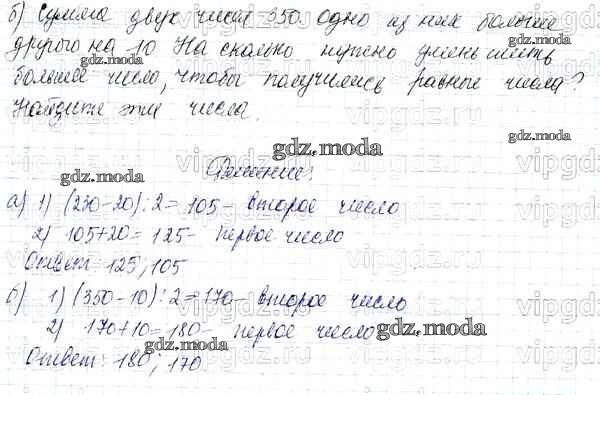 б) Сумма двух чисел 350. Одно из них больше
другого на 10 На сколько нужно уменьшить
большее число, чтобы получились равные числа?
Найдите эти числа.
gdz.moda
gdz.moda
gdz.moda
Решение:
а) 1) (230-20):2=105- второе число
2) 105+20=125- первое число
Ответ: 125; 105
б) 1) (350-10):2=170- второе число
2) 170+10=180- первое число
gdz.moda
gdz.moda
Ответ: 180; 170
vipgdz.ru